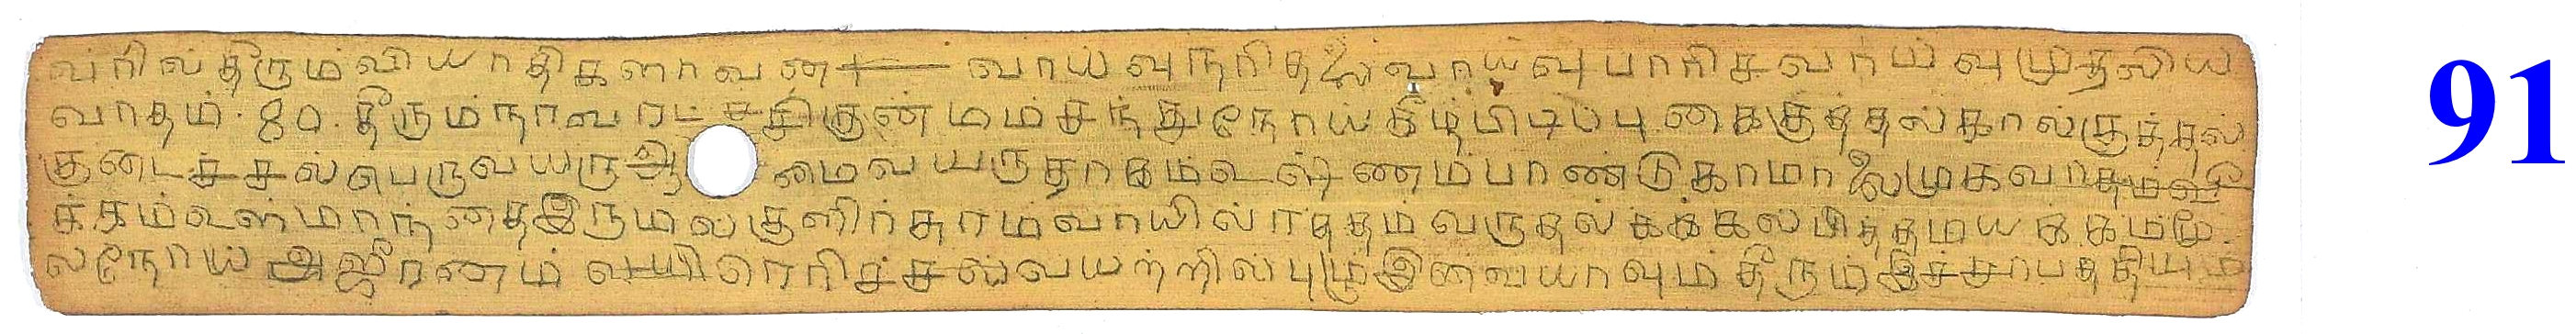 வரில் தீரும் வியாதிகளாவன + வாய்வு நரிதலை வாய்வு பாரிச வாய்வு முதலிய
வாதம். 80. தீரும் நாவரட்சசி குன்மம் சந்து நோய் கீழ்பிடிப்பு கைகுத்தல் கால்குத்தல்
குடைச்சல் பெருவயரு ஆமைவயரு தாகம் உஷ்ணம் பாண்டு காமாலை முகவாதம் வீ
க்கம் உள்மாந்தை இருமல் குளிர்சுரம் வாயில் ரத்தம் வருதல் கக்கல் பித்தமயக்கம் மூ
லநோய் அஜீரணம் வயிரெரிச்சல் வயற்றில் புழு இவையாவும் தீரும் இச்சாபத்தியம்
91